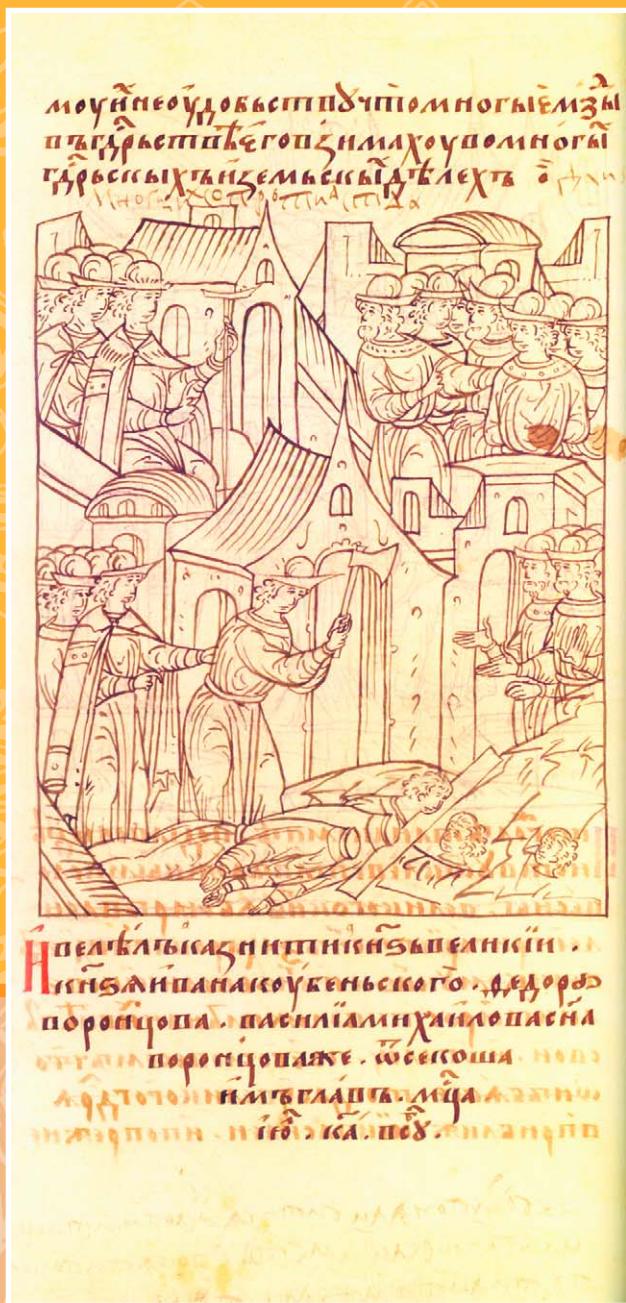 моу и неоудобьствꙋ что многые мзы
въ гд҃рьствѣ его взимахоу во многы
гд҃рьскыхъ и земьскы дѣлехъ
И велѣлъ казнити кн҃ѕь великіи .
кн҃ѕѧ ивана коубеньского . ѳедора
воронцова . василіа михаилова сн҃а
воронцова же . ѿсекоша
имъ главъ . мц҃а
іюⷧ҇ . к҃а . в сꙋⷠ .